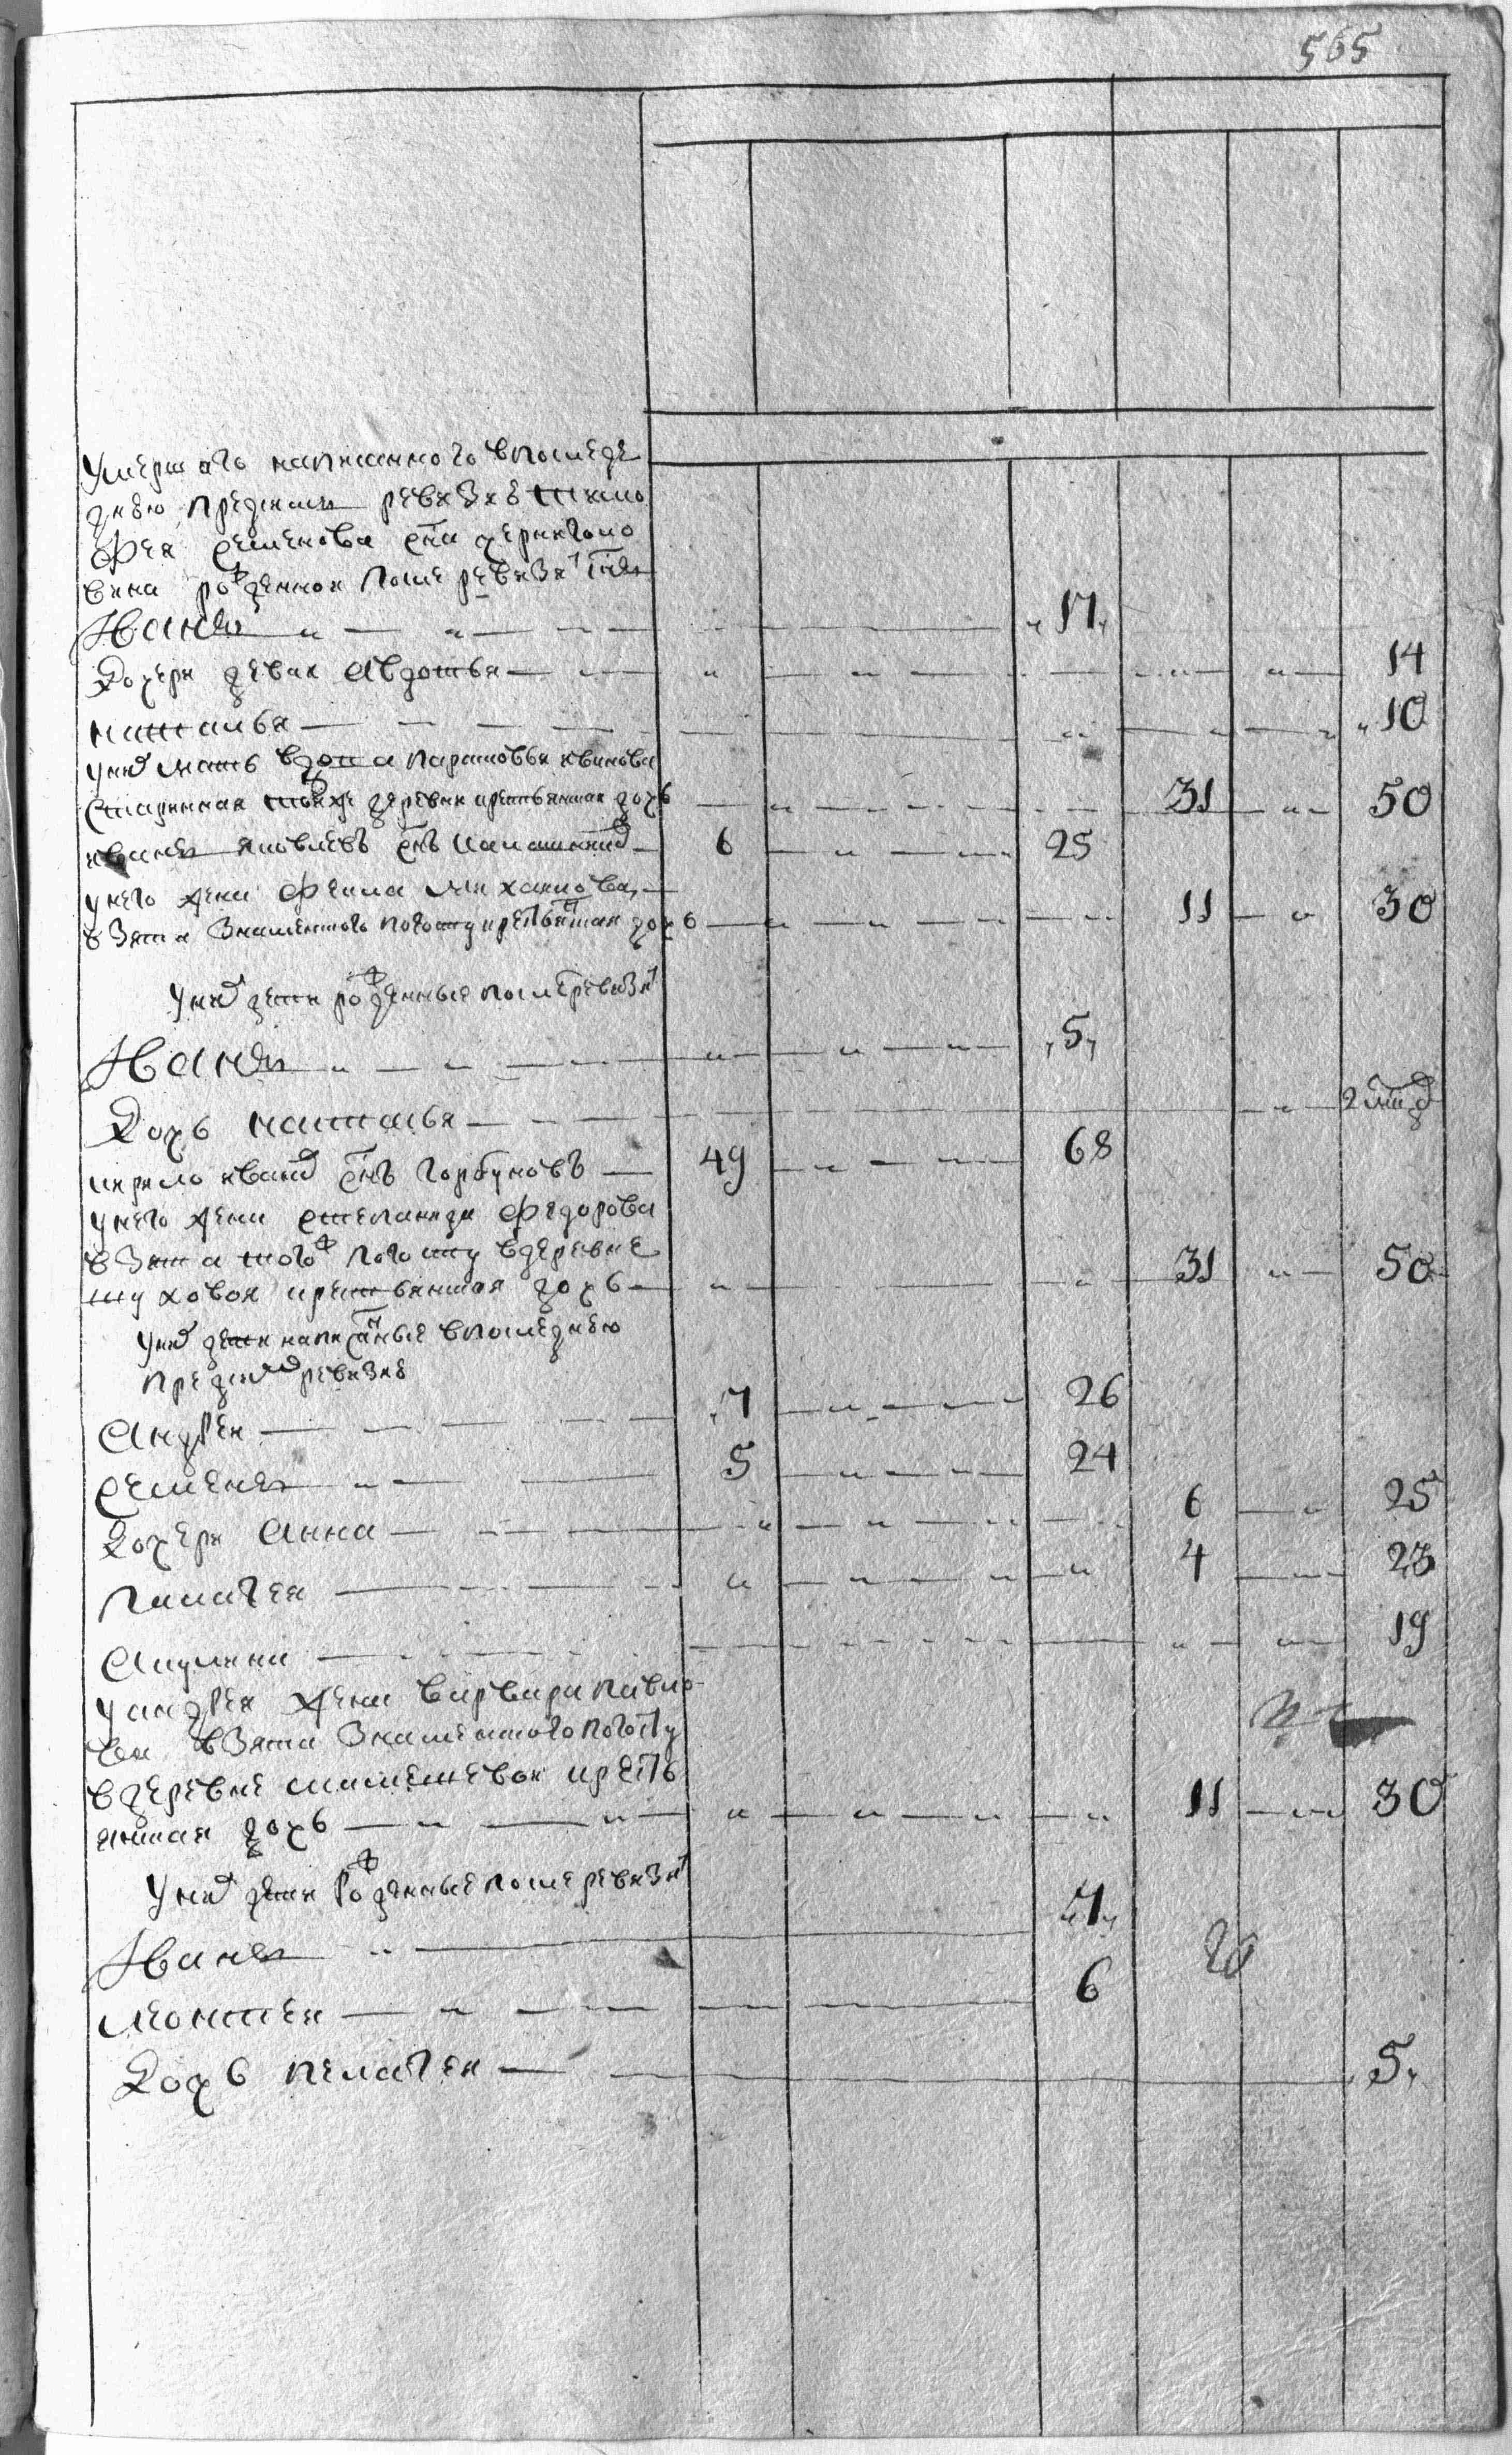 565
умершаго написанного в последе
днею пред сим ревизию тимо
фея семенова сна
вина рожденной после ревизи снъ
Иванъ 17
Дочери девки авдотья 14
наталья 10
у них мать вдова парасковья иванова
старинная той же деревни крестьянская дочь 31 50
иванъ яковлевъ снъ 6 25
у него жена Фекла михаилова
взята Знаменского погосту крестьянская дочь 11 30
у них дети рожденные после ревизи
Иванъ 5
Дочь наталья 2 мцъ
кирило иванов снъ горбуновъ 49 68
у него жена степанида федорова
взята того ж погосту в деревне
шуховой крестьянская дочь 31 50
у них дети написанные в последнею
пред сим ревизию
Андрей 7 26
семенъ 5 24
Дочери Анна 6 25
палагея 4 23
Акулина 19
у андрея жена варвара павло
ва взята Знаменского погосту
в деревне крестъ
янская дочь 11 30
у них дети рожденные после ревизи
Иванъ 7
леонтей 6
Дочь пелагея 5